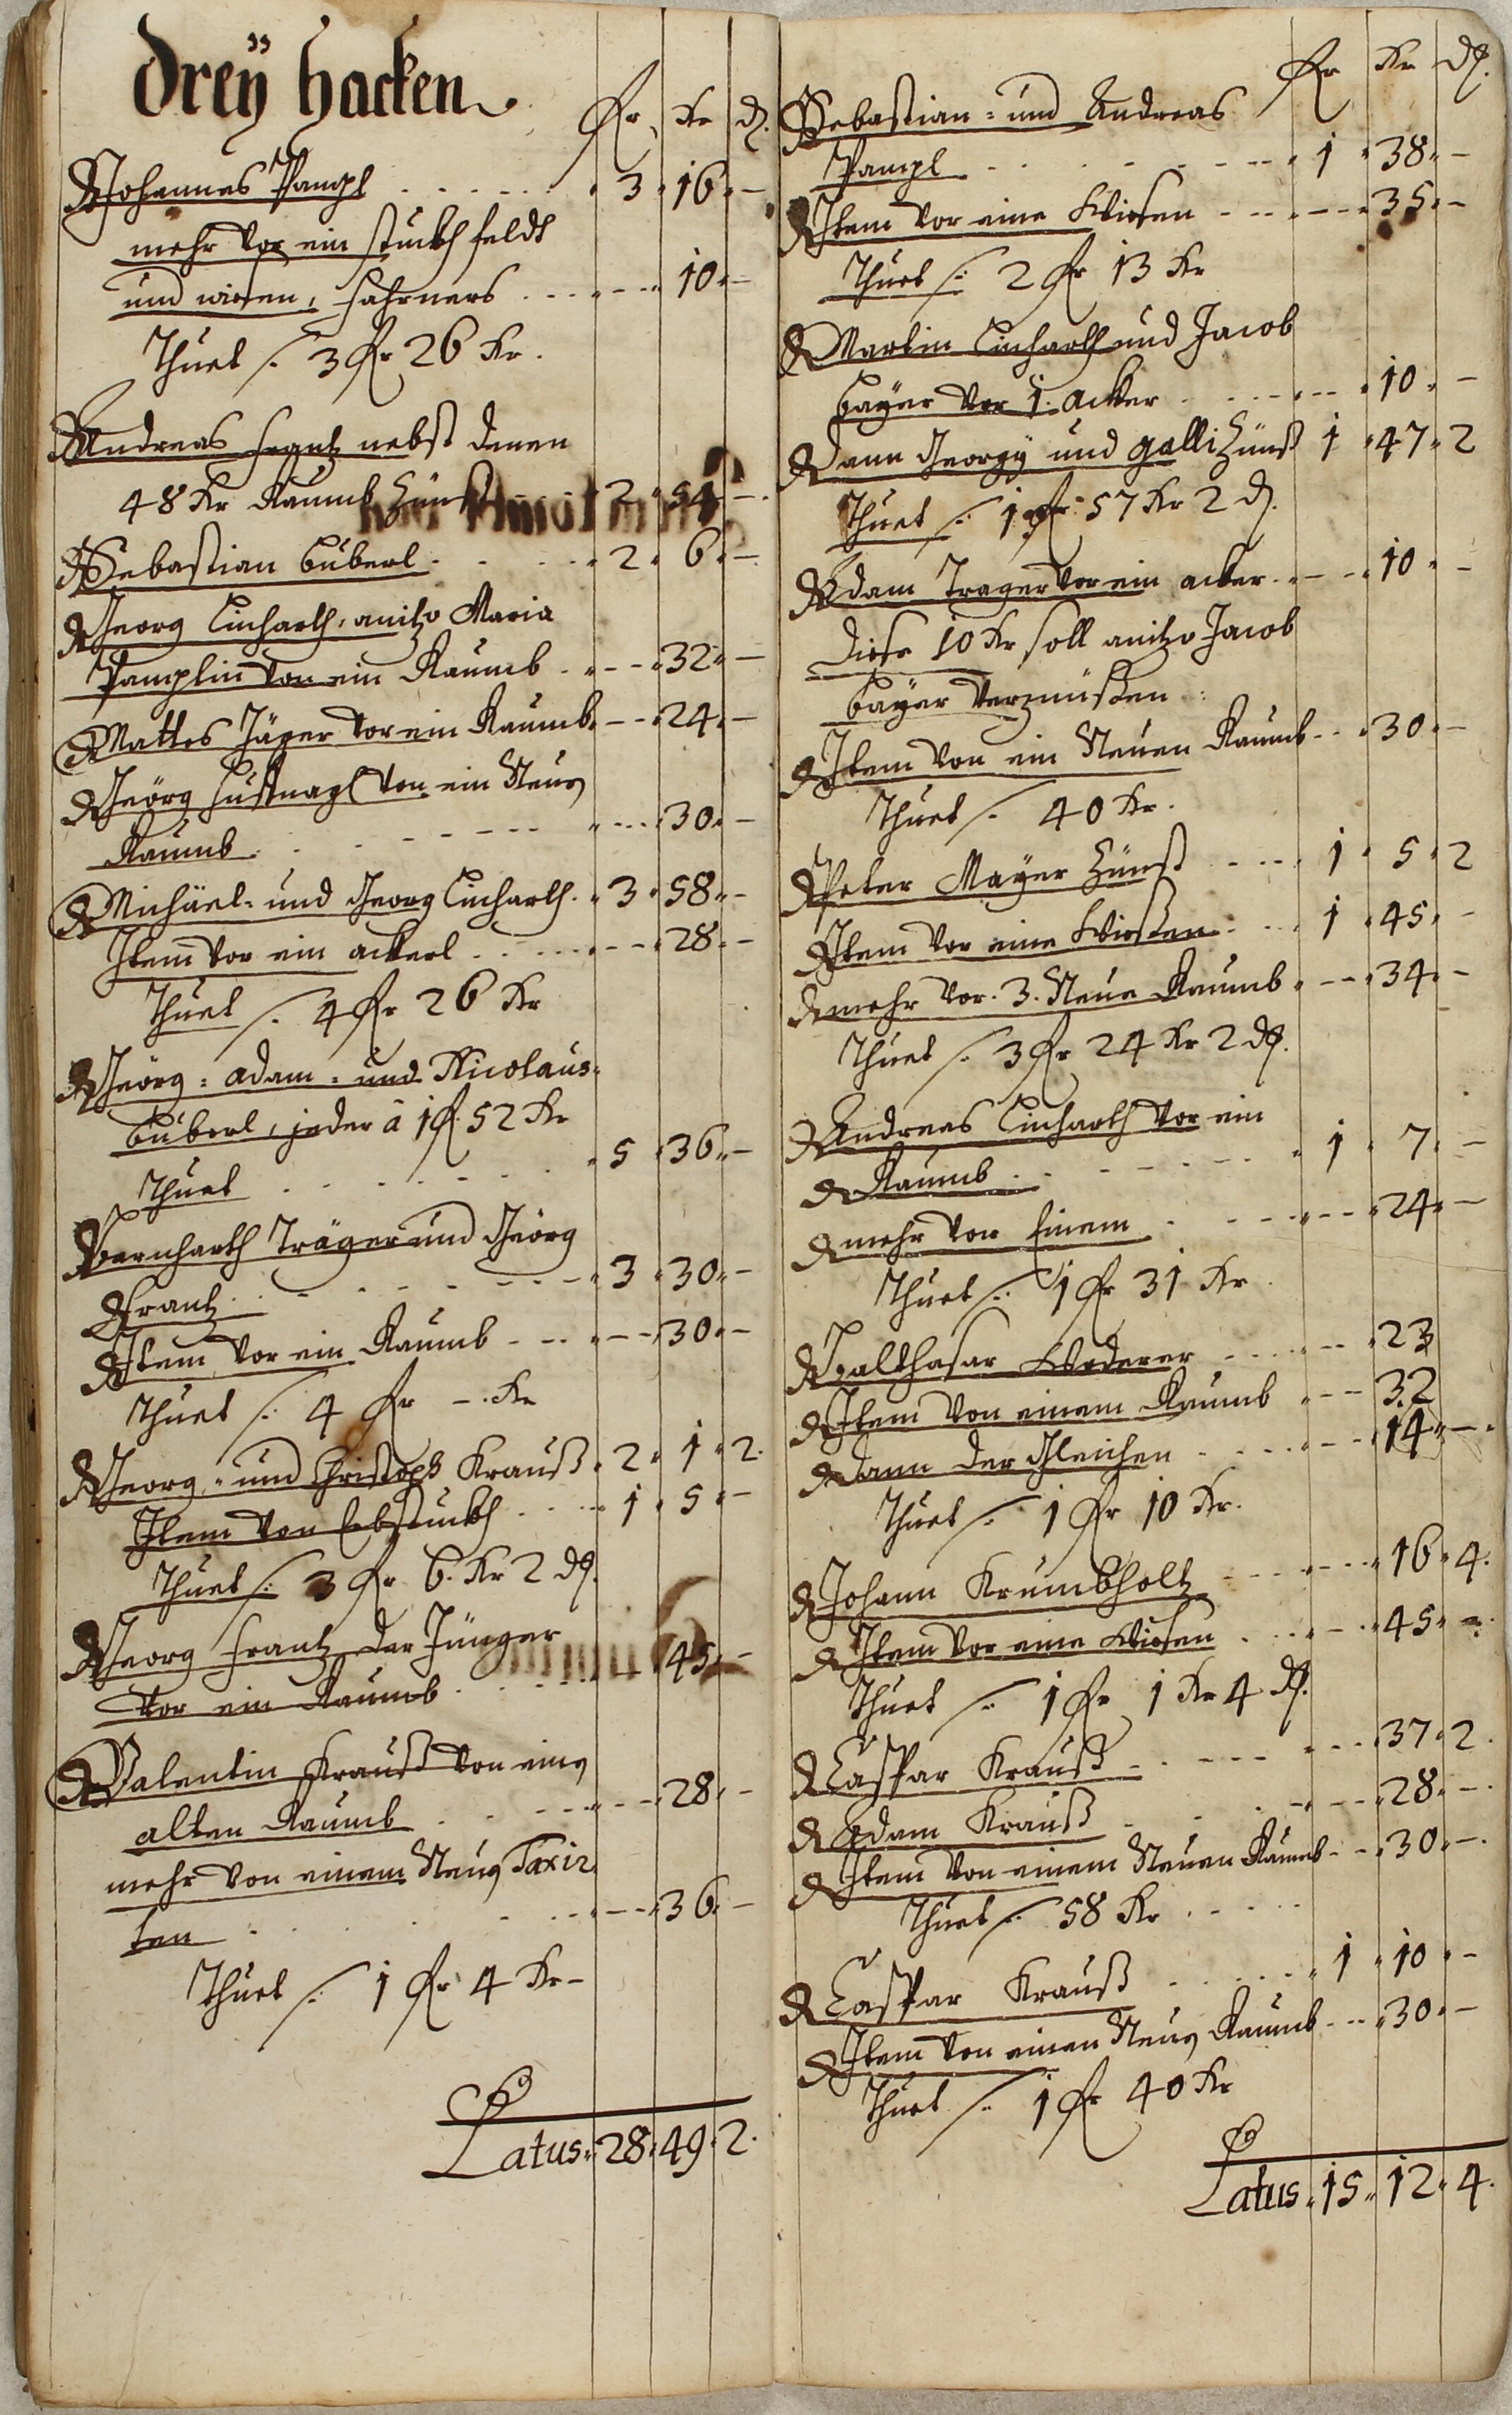 Dreÿ Hacken
fr Kr d.
Johannes Pampl 3 16 –
mehr vor ein stuckh feldt
und wiesen, 10 –
Thuet /: 3 fr 26 Kr.
Andreas Frantz nebst denen
48 Kr Raumb Zünß 2 54 –
Sebastian Büberl 2 6 –
Georg Linharth, anitzo Maria
Pamplin von ein Raumb – 32 –
Mattes Jäger vor ein Raumb – 24 –
Geörg von ein Neuen
Raumb – 30 –
Michäel- und Georg Linharth 3 58 –
Item vor ein ackerl – 28 –
Thuet /: 4 fr 26 Kr
Geörg= Adam= und Nicolaus
Büberl, jeder â 1 f. 52 Kr
Thuet 5 36 –
Bernharth Träger und Geörg
Frantz 3 30 –
Item vor ein Raumb – 30 –
Thuet /: 4 fr –. Kr
Georg- und Christoph Krauß 2 1 2.
Item von Erbstuckh 1 5 –
Thuet /: 3 fr 6. Kr 2 d.
Georg Frantz der Jünger
vor ein Raumb – 45 –
Valentin Krauß von ein
alten Raumb – 28 –
mehr von einem Neuen Taxir
ten – 36 –
Thuet /: 1 fr 4 Kr –
Latus 28 49 2.
fr Kr d.
Sebastian= und Andreas
Pampl 1 38 –
Item vor eine Wiesen – 35 –
Thuet /: 2 fr 13 Kr
Martin Linharth und Jacob
Baÿer vor 1. acker – 10 –
Dann Georgÿ und Galli Zünß 1 47 2
Thuet /: 1 fr 57 Kr 2 d.
Adam Trager vor ein acker – 10 –
Diese 10 Kr soll anitzo Jacob
Baÿer verzünßen
Item von ein Neuen Raumb 30 –
Thuet /: 40 Kr.
Peter Maÿer Zünß 1 5 2
Item vor eine Wiesen 1 45 –
mehr vor 3. Neue Raumb – 34 –
Thuet /: 3 fr 24 Kr 2 d.
Andreas Linharth vor ein
Raumb 1 7 –
mehr von Einem – 24 –
Thuet /: 1 fr 31 Kr
Balthasar Wederer – 23
Item von einem Raumb – 32
Dann der Gleichen – 14 –
Thuet /: 1 fr 10 Kr.
Johann Krumbholtz – 16 4.
Item vor eine Wiesen – 45 –
Thuet /: 1 fr 1 Kr 4 d.
Caspar Krauß – 37 2.
Adam Krauß – 28 –
Item von einem Neuen Raumb – 30 –
Thuet /: 58 Kr
Caspar Krauß 1 10 –
Item von einen Neuen Raumb – 30 –
Thuet /: 1 fr 40 Kr
Latus 15 12 4.